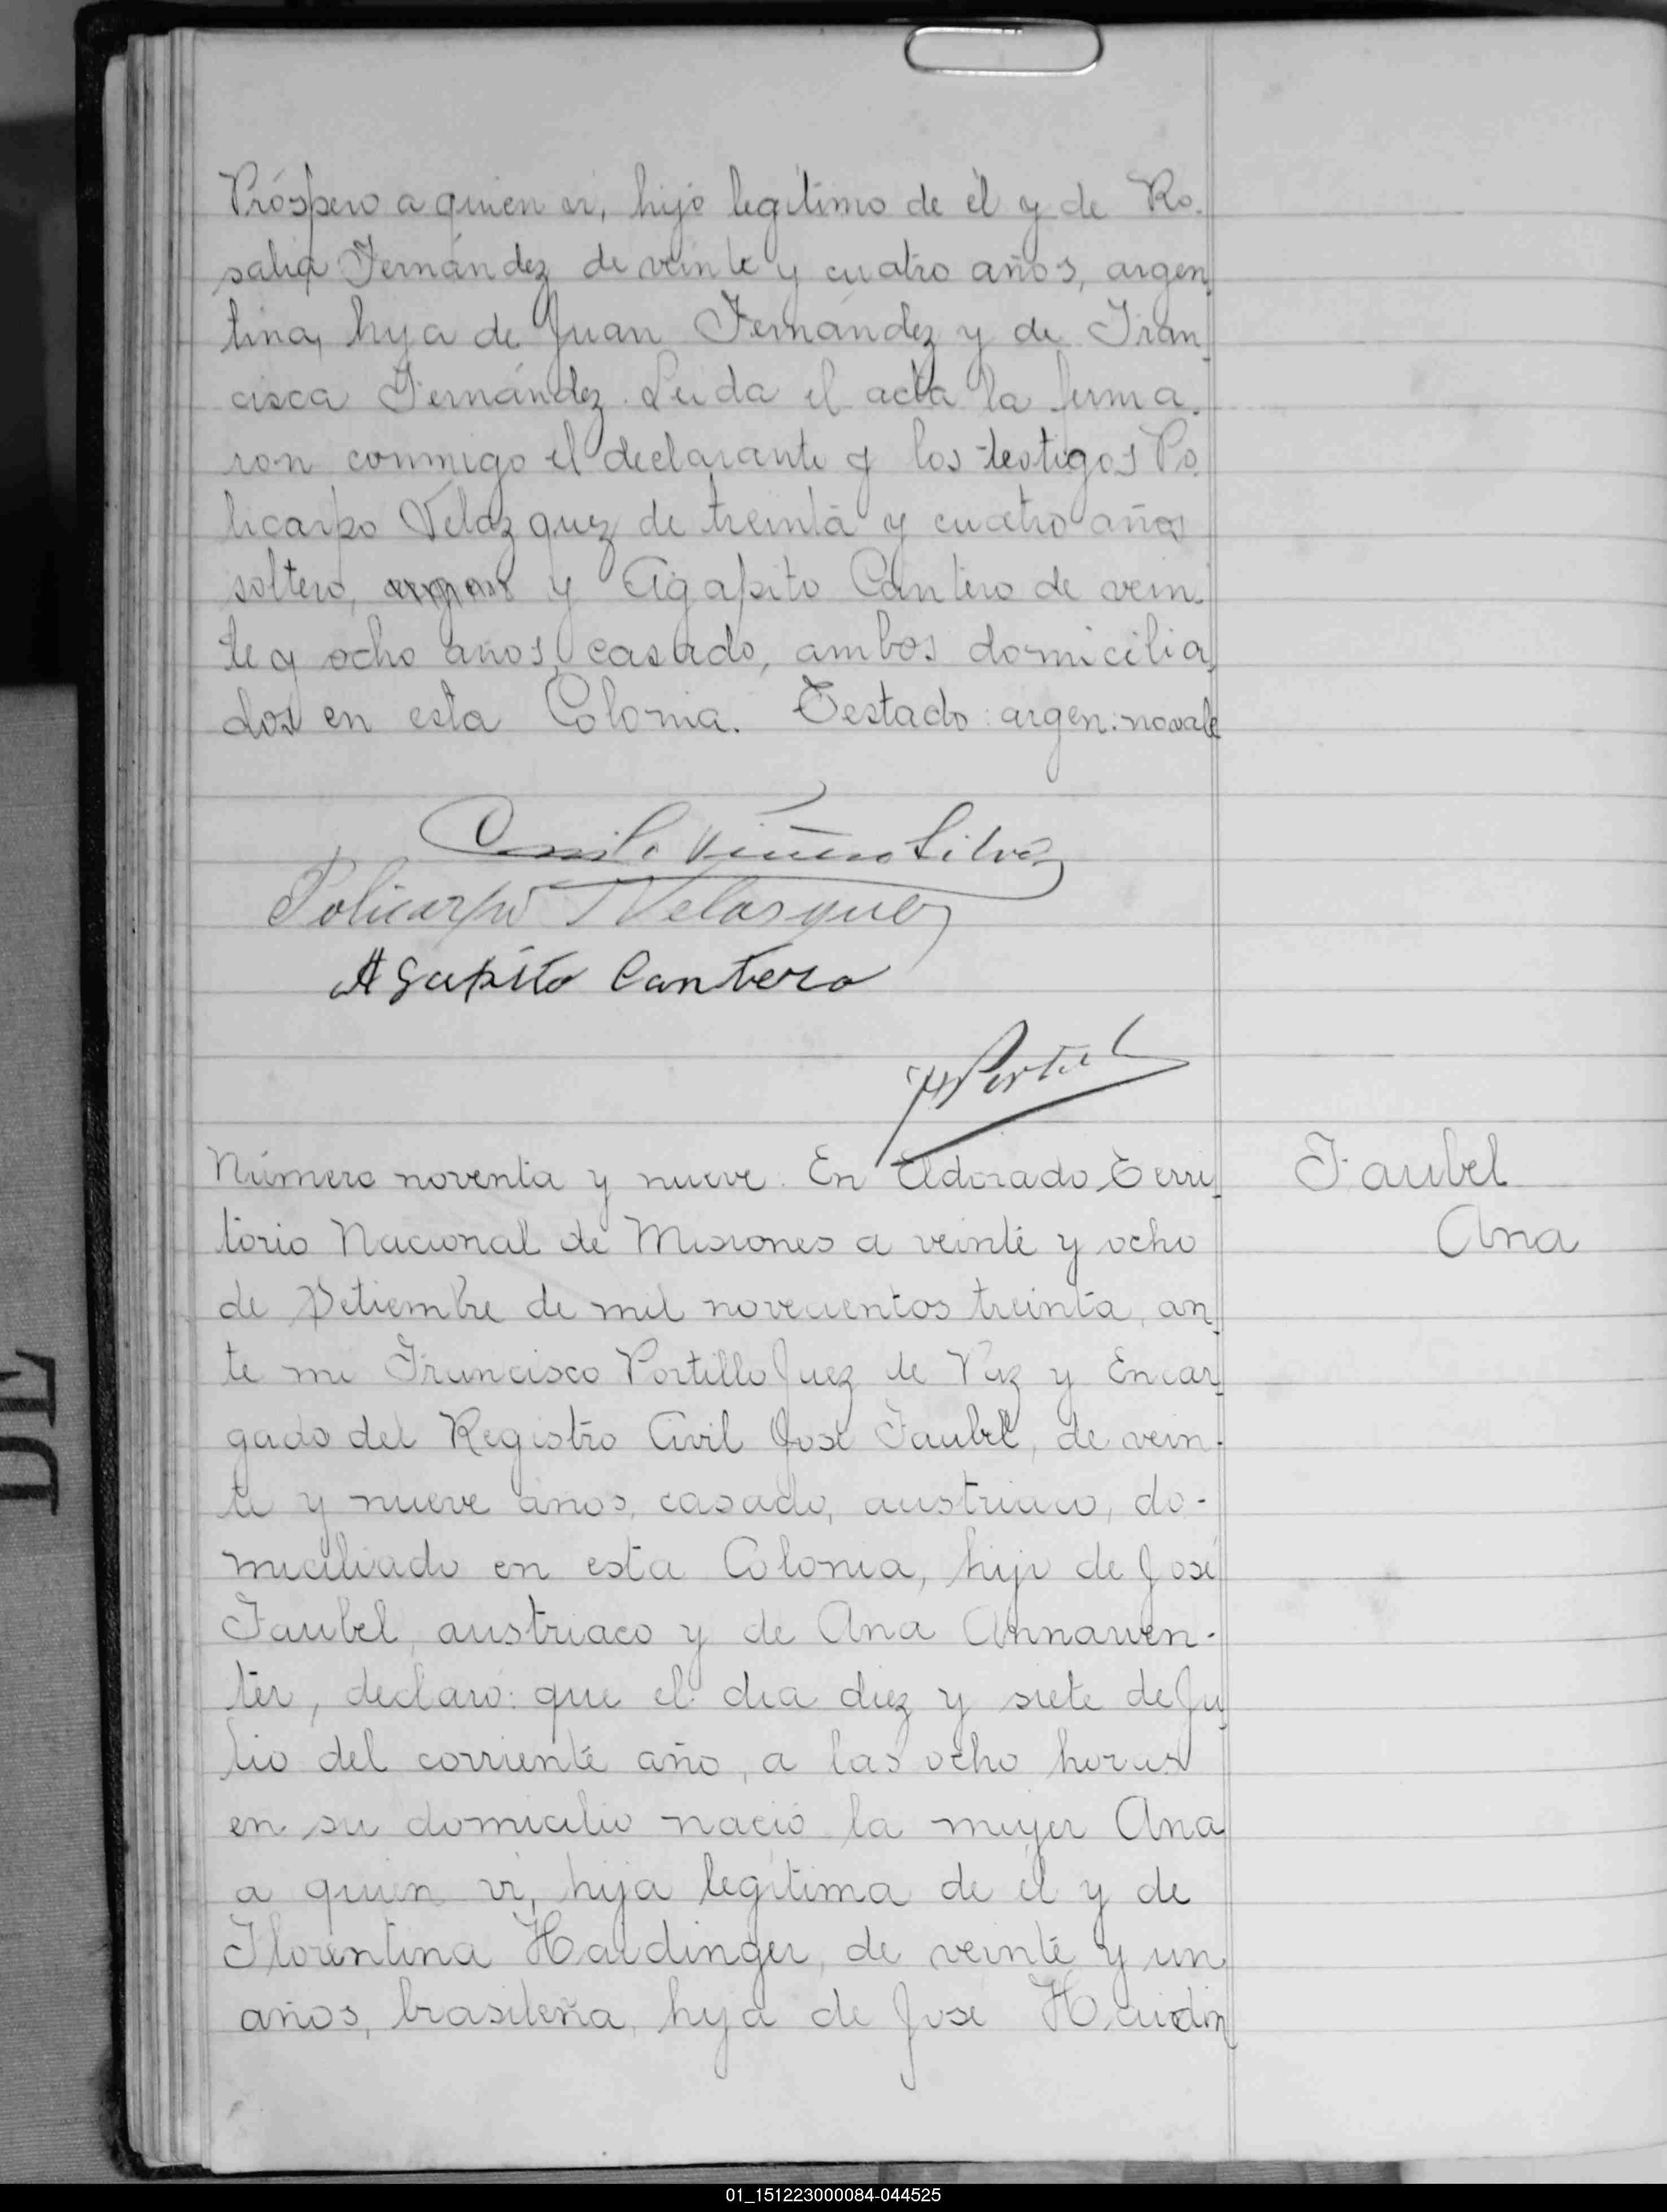 Próspero a quien ví, hijo legítimo de él y de Ro-
salia Fernández de veinte y cuatro años, argen-
tina, hija de Juan Fernández y de Fran-
cisca Fernández. Leida el acta la firma-
ron conmigo el declarante y los testigos Po-
licarpo Velazquez de treinta y cuatro años
soltero, argen y Agapito Cantero de vein-
te y ocho años, casado, ambos domicilia-
dos en esta Colonia. Testado: argen: no vale
Silva
Policarpo Velasquez
Agapito Cantero
Portillo
Número noventa y nueve. En Eldorado, Terri-
torio Nacional de Misiones a veinte y ocho
de Setiembre de mil novecientos treinta, an-
te mi Francisco Portillo Juez de Paz y Encar-
gado del Registro Civil José Faubel, de vein-
te y nueve años, casado, austriaco, do-
miciliado en esta Colonia, hijo de José
Faubel, austriaco y de Ana Annawen-
ter, declaró: que el dia diez y siete de Ju-
lio del corriente año, a las ocho horas
en su domicilio nació la mujer Ana
a quien ví, hija legítima de él y de
Florentina Haidinger, de veinte y un
años, brasileña, hija de José Haidin
Faubel
Ana
DE
01_151223000084-044525